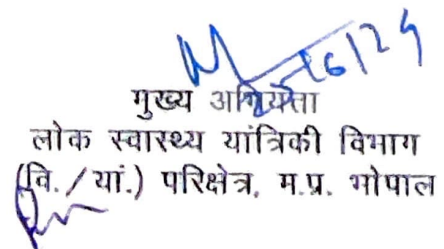 मुख्य अभियंता
लोक स्वास्थ्य यांत्रिकी विभाग
(वि./यां.) परिक्षेत्र, म.प्र. भोपाल